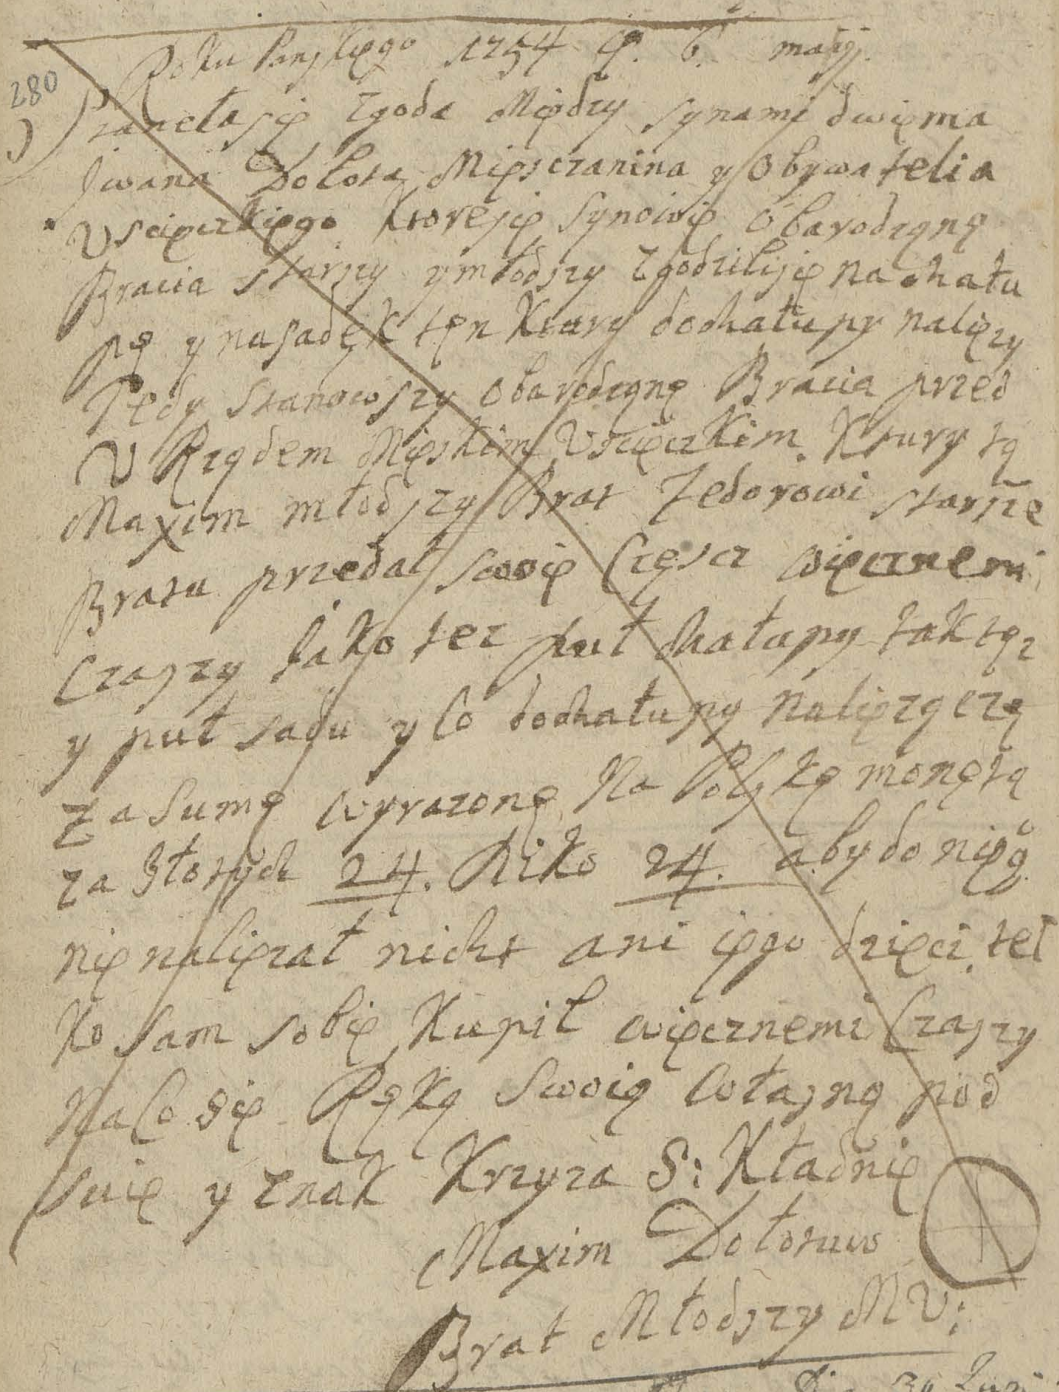 Roku Panskiego 1754 d. 6. maij.
280
Stanełasię Zgoda Między synami dwiema
Jwana Dołota Miesczanina y Obywatelia
Uscieczkiego Ktoresię Synowie Obarodzone
Bracia starszy y młodszy Zgodzilisię na chału
pę y nasadek ten Ktury dochałupy należy
Tedy stanowszy obarodzone Bracia przed
U Rzędem Mieskim Uscieczkim. Ktury tą
Maxim młodszy Brat Fedorowi starsze
Bratu przedał swoię Częscz wiecznemi
Czaszy Jako tez puł chałupy taktez
y puł sadu y Co dochałupy naliezączą
za Sumę wyrazoną Na Polską monętą
za Złotych 24. Diko 24. aby do niego
nie naliezał nicht ani iego dzieci. tel
ko sam sobie Kupił wiecznemi Czaszy
Na Co się Ręką Swoią Własną pod
suię y Znak Krzyza S: Kładnię
Maxim Dołotuw
Brat Młodszy MU: